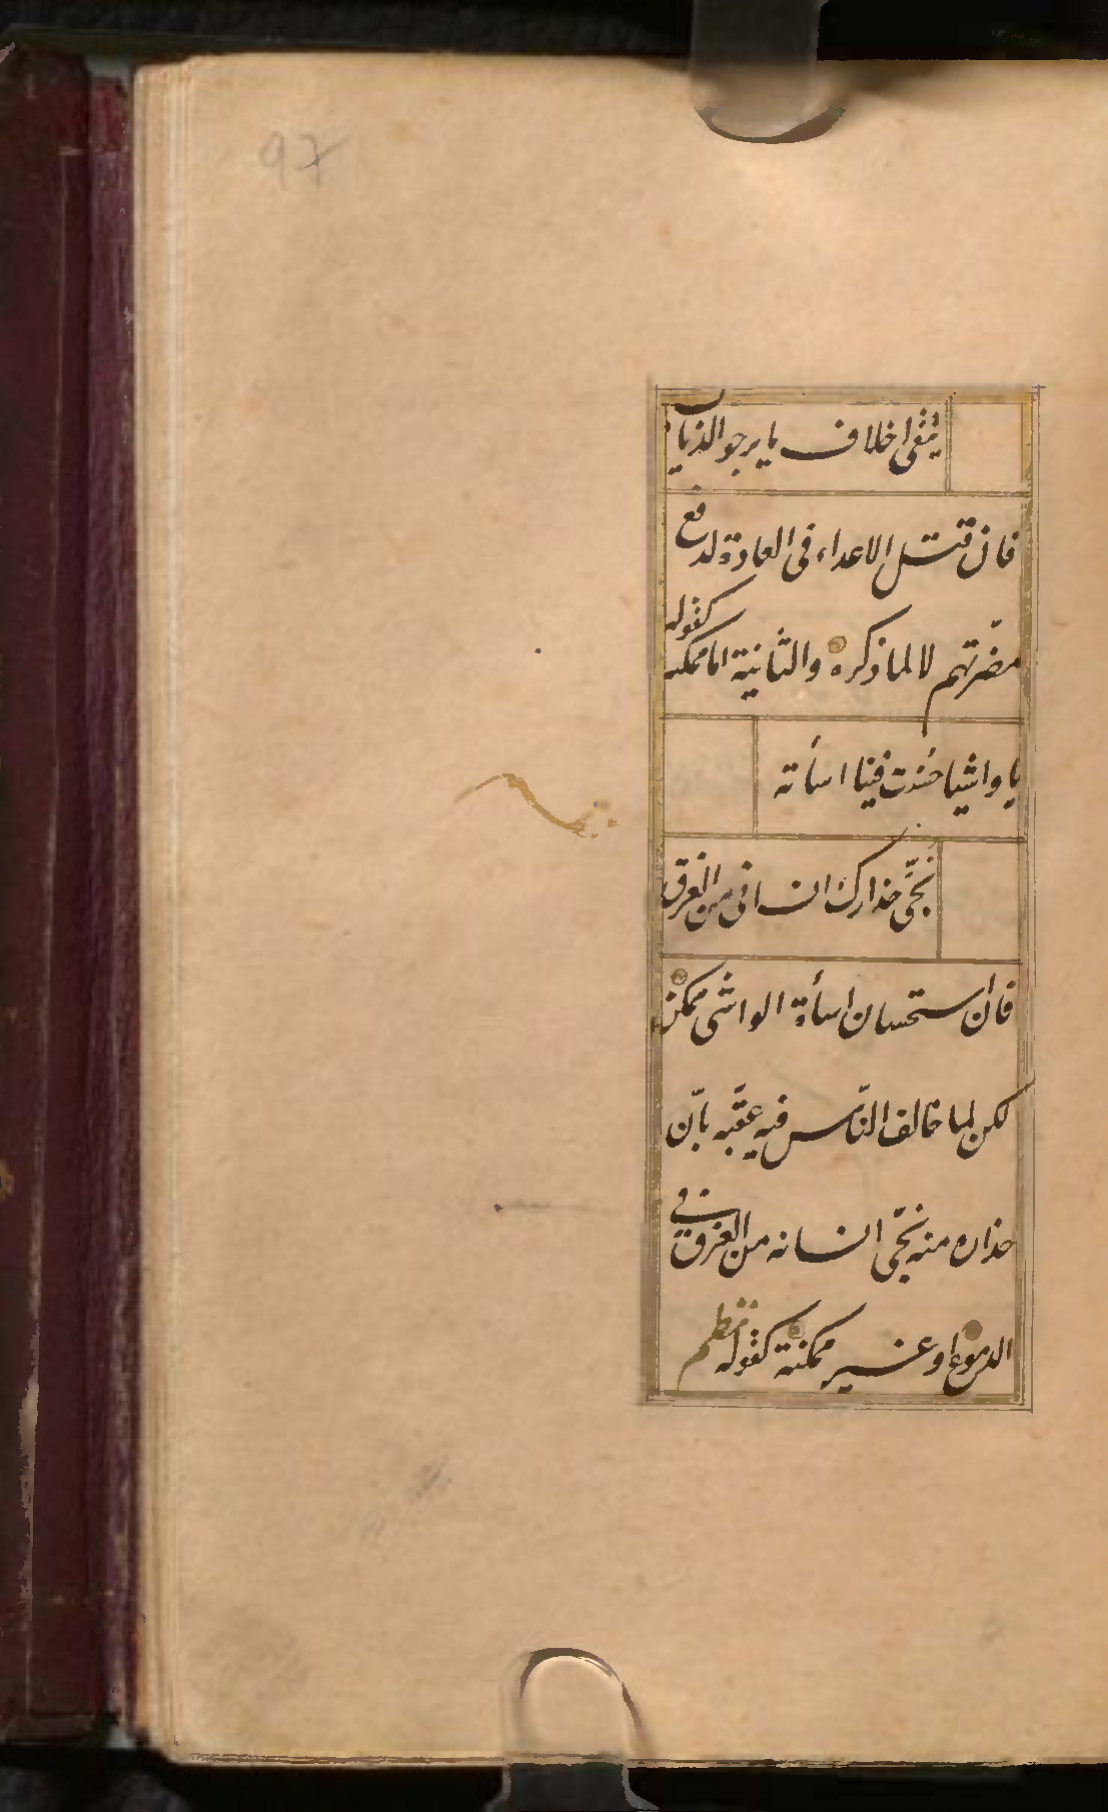 97
يتقى اخلاف ما يرجو الذياب
فان قتل الاعداء فى العادة لدفع
مضرّتهم لا لما ذكره والثانية اما ممكنة كقوله
يا واشيا حسنت فينا اسأته
نجّى حذارك انسانى من الغرق
فان استحسان اسأة الواشى ممكن
لكن لما خالف النّاس فيه عقّبه بانّ
حذاره منه نجّى انسانه من الغرق فى
الدموع او غير ممكنة كقوله نظم